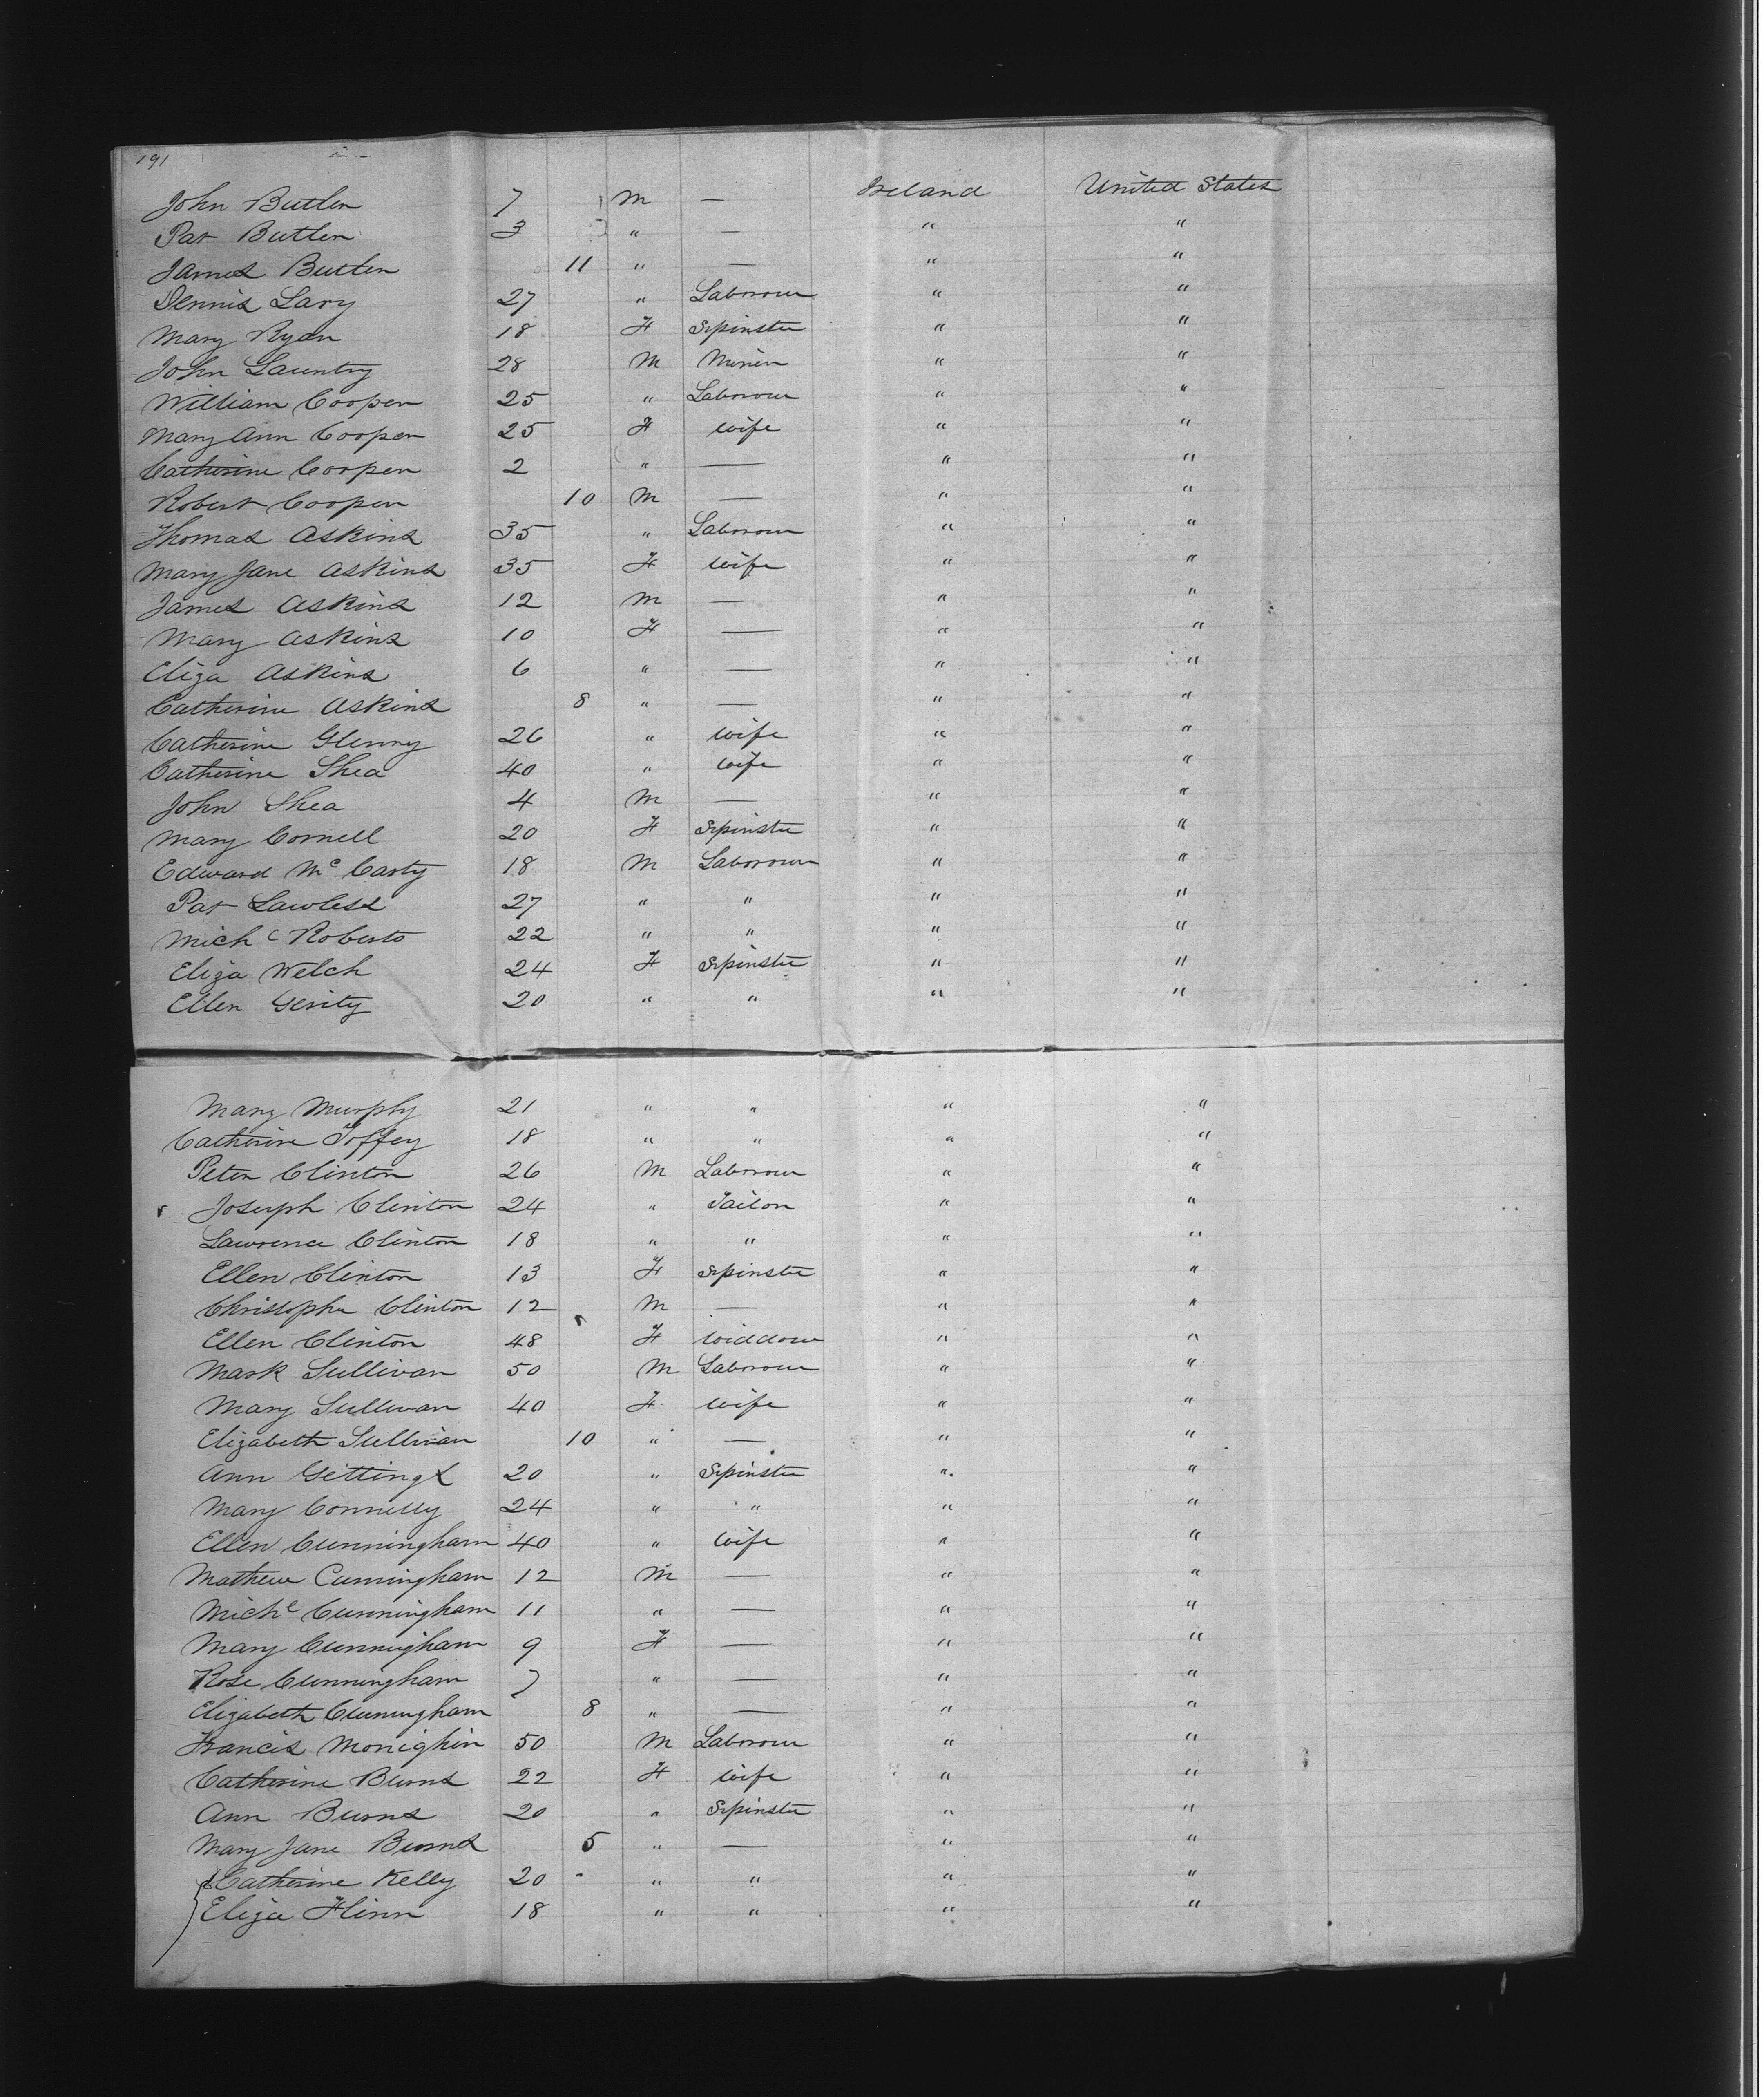 191
John Butler 7 M — Ireland United States
Pat Butler 3 " — " "
James Butler 11 " — " "
Dennis Lary 27 " Laborour " "
Mary Ryan 18 F Spinster " "
John Launtry 28 M Miner " "
William Cooper 25 " Laborour " "
Mary Ann Cooper 25 F wife " "
Catherine Cooper 2 " — " "
Robert Cooper 10 M — " "
Thomas Askins 35 " Laborour " "
Mary Jane Askins 35 F wife " "
James Askins 12 M — " "
Mary Askins 10 F — " "
Eliza Askins 6 " — " "
Catherine Askins 8 " — " "
Catherine Glenny 26 " wife " "
Catherine Shea 40 " wife " "
John Shea 4 M — " "
Mary Cornell 20 F Spinster " "
Edward Mc Carty 18 M Laborour " "
Pat Lawless 27 " " " "
Michl Roberts 22 " " " "
Eliza Welch 24 F Spinster " "
Ellen Gerity 20 " " " "
Mary Murphy 21 " " " "
Catherine Toffey 18 " " " "
Peter Clinton 26 M Laborour " "
Joseph Clinton 24 " Tailor " "
Lawrence Clinton 18 " " " "
Ellen Clinton 13 F Spinster " "
Christopher Clinton 12 M — " "
Ellen Clinton 48 F widdow " "
Mark Sullivan 50 M Laborour " "
Mary Sullivan 40 F wife " "
Elizabeth Sullivan 10 " — " "
Ann Gittings 20 " Spinster " "
Mary Connelly 24 " " " "
Ellen Cunningham 40 " wife " "
Mathew Cunningham 12 M — " "
Michl Cunningham 11 " — " "
Mary Cunningham 9 F — " "
Rose Cunningham 7 " — " "
Elizabeth Cunningham 8 " — " "
Francis Monighin 50 M Laborour " "
Catherine Burns 22 F wife " "
Ann Burns 20 " Spinster " "
Mary Jane Burns 5 " — " "
Catherine Kelly 20 " " " "
Eliza Flinn 18 " " " "